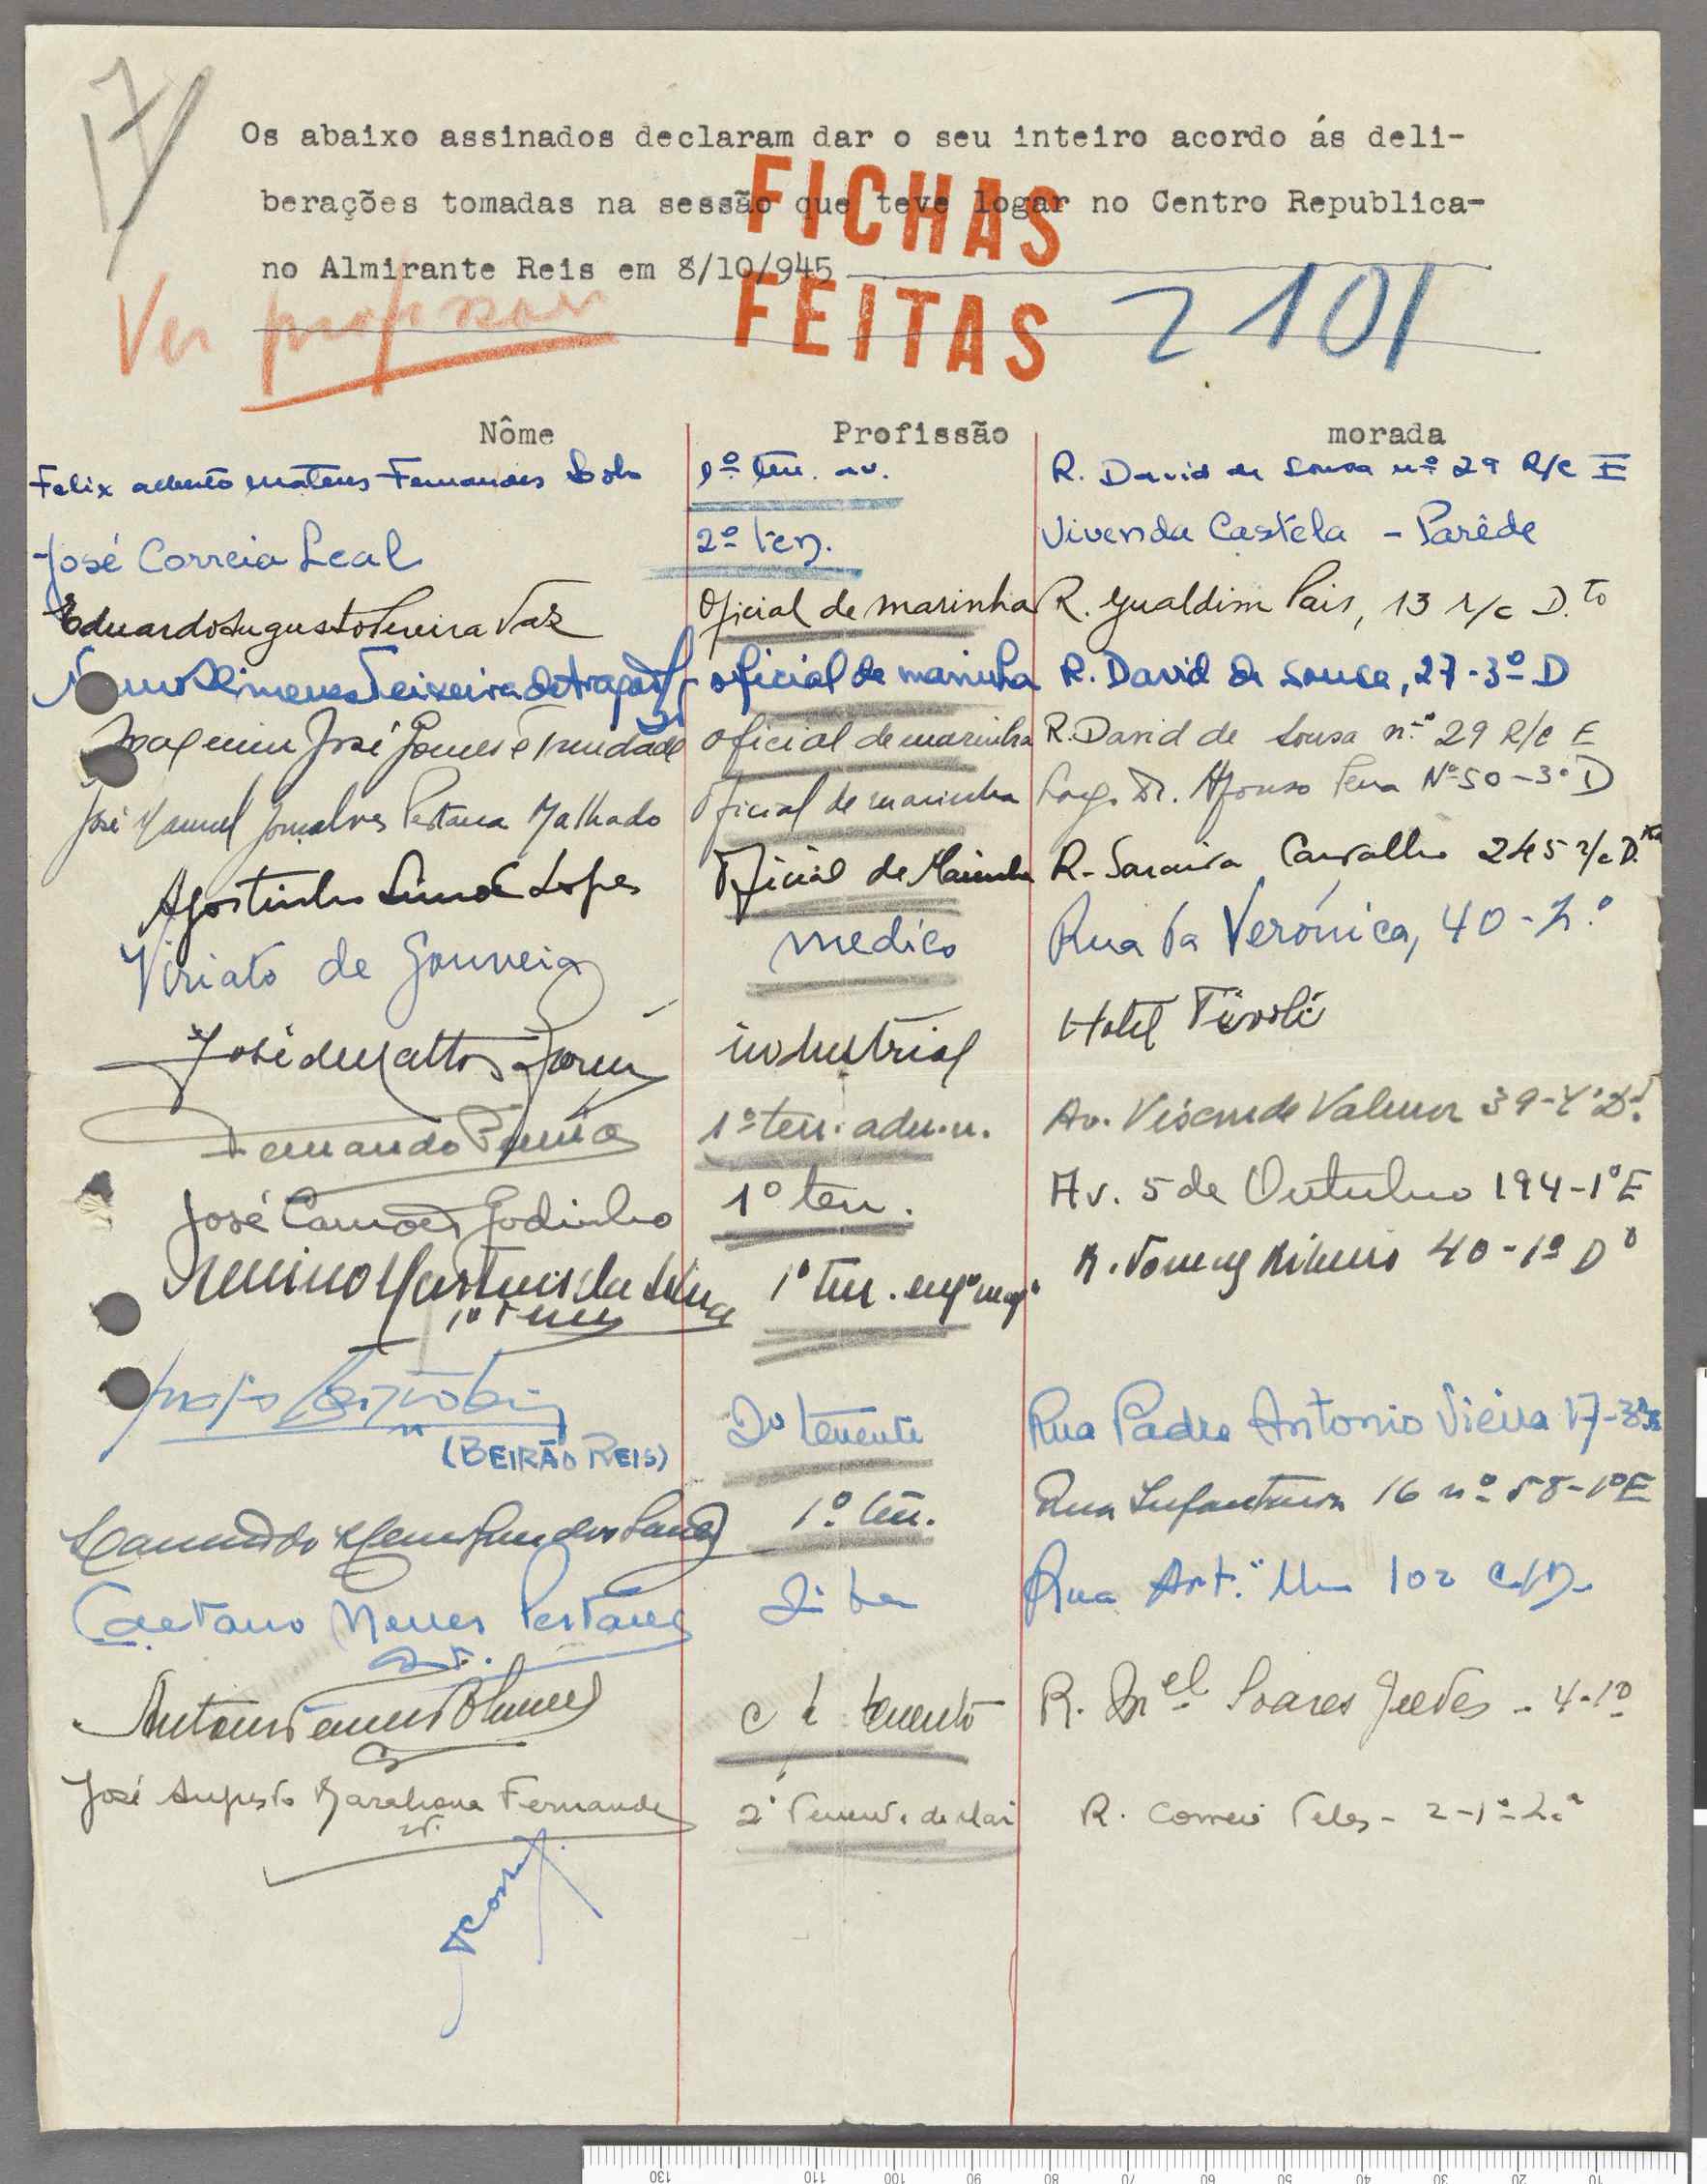 17
Os abaixo assinados declaram dar o seu inteiro acordo ás deli-
berações tomadas na sessão que teve logar no Centro Republica-
no Almirante Reis em 8/10/945
FICHAS
FEITAS
Ver professor
2101
Nôme Profissão morada
Felix Alberto Mateus Fernandes 1º ten. av. R. David de Sousa nº 29 R/c E
José Correia Leal 2º ten. Vivenda Castela - Parêde
Eduardo Augusto Pereira Vaz Oficial de marinha R. Gualdim Pais, 13 r/c D.to
Teixeira de oficial de marinha R. David de Sousa, 27-3º D
Joaquim José Gomes e Trindade oficial de marinha R. David de Sousa n.º 29 R/c E
José Manuel Gonçalves Pestana Malhado Oficial de marinha Larg. Dr. Afonso Pena Nº 50-3º D
Agostinho Simões Lopes Oficial de Marinha R. Saraiva Carvalho 245 r/c D.to
Viriato de Gouveia medico Rua da Verónica, 40-2.º
José de Mattos industrial Hotel Tivoli
Fernando 1º ten. adm. n. Av. Visconde Valmor 39-4º Dt.
José Camões Godinho 1º ten. Av. 5 de Outubro 194-1º E
Martins da Silva 1º ten. engº maqº R. Tomaz Ribeiro 40-1º Dº
1º Ten
(BEIRÃO REIS) 2º tenente Rua Padre Antonio Vieira 17-3º
dos Santos 1º ten. Rua Infantaria 16 nº 58-1º E
Caetano Nunes Pestana Rua Art.ª Um 102 c/
Antonio tenente R. Mel Soares Guedes - 4-1º
José Augusto Barahona Fernandes 2º Tenente de Mar R. Correia Teles - 2-1º